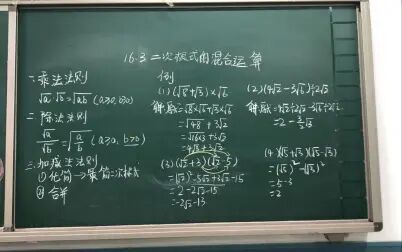 16.3 二次根式的混合运算
一、乘法法则
√a·√b=√ab (a≥0, b≥0)
二、除法法则
√a/√b=√(a/b) (a≥0, b>0)
三、加减法法则
① 化简→最简二次根式
② 合并
例
(1) (√8+√3)×√6
解:原式=√8×√6+√3×√6
=√48+3√2
=√16×3+3√2
=4√3+3√2
(2) (4√2-3√6)÷2√2
解:原式=4√2÷2√2-3√6÷2√2
=2-3/2√3
(3) (√2+3)(√2-5)
=(√2)²-5√2+3√2-15
=2-2√2-15
=-2√2-13
(4) (√5+√3)(√5-√3)
=(√5)²-(√3)²
=5-3
=2